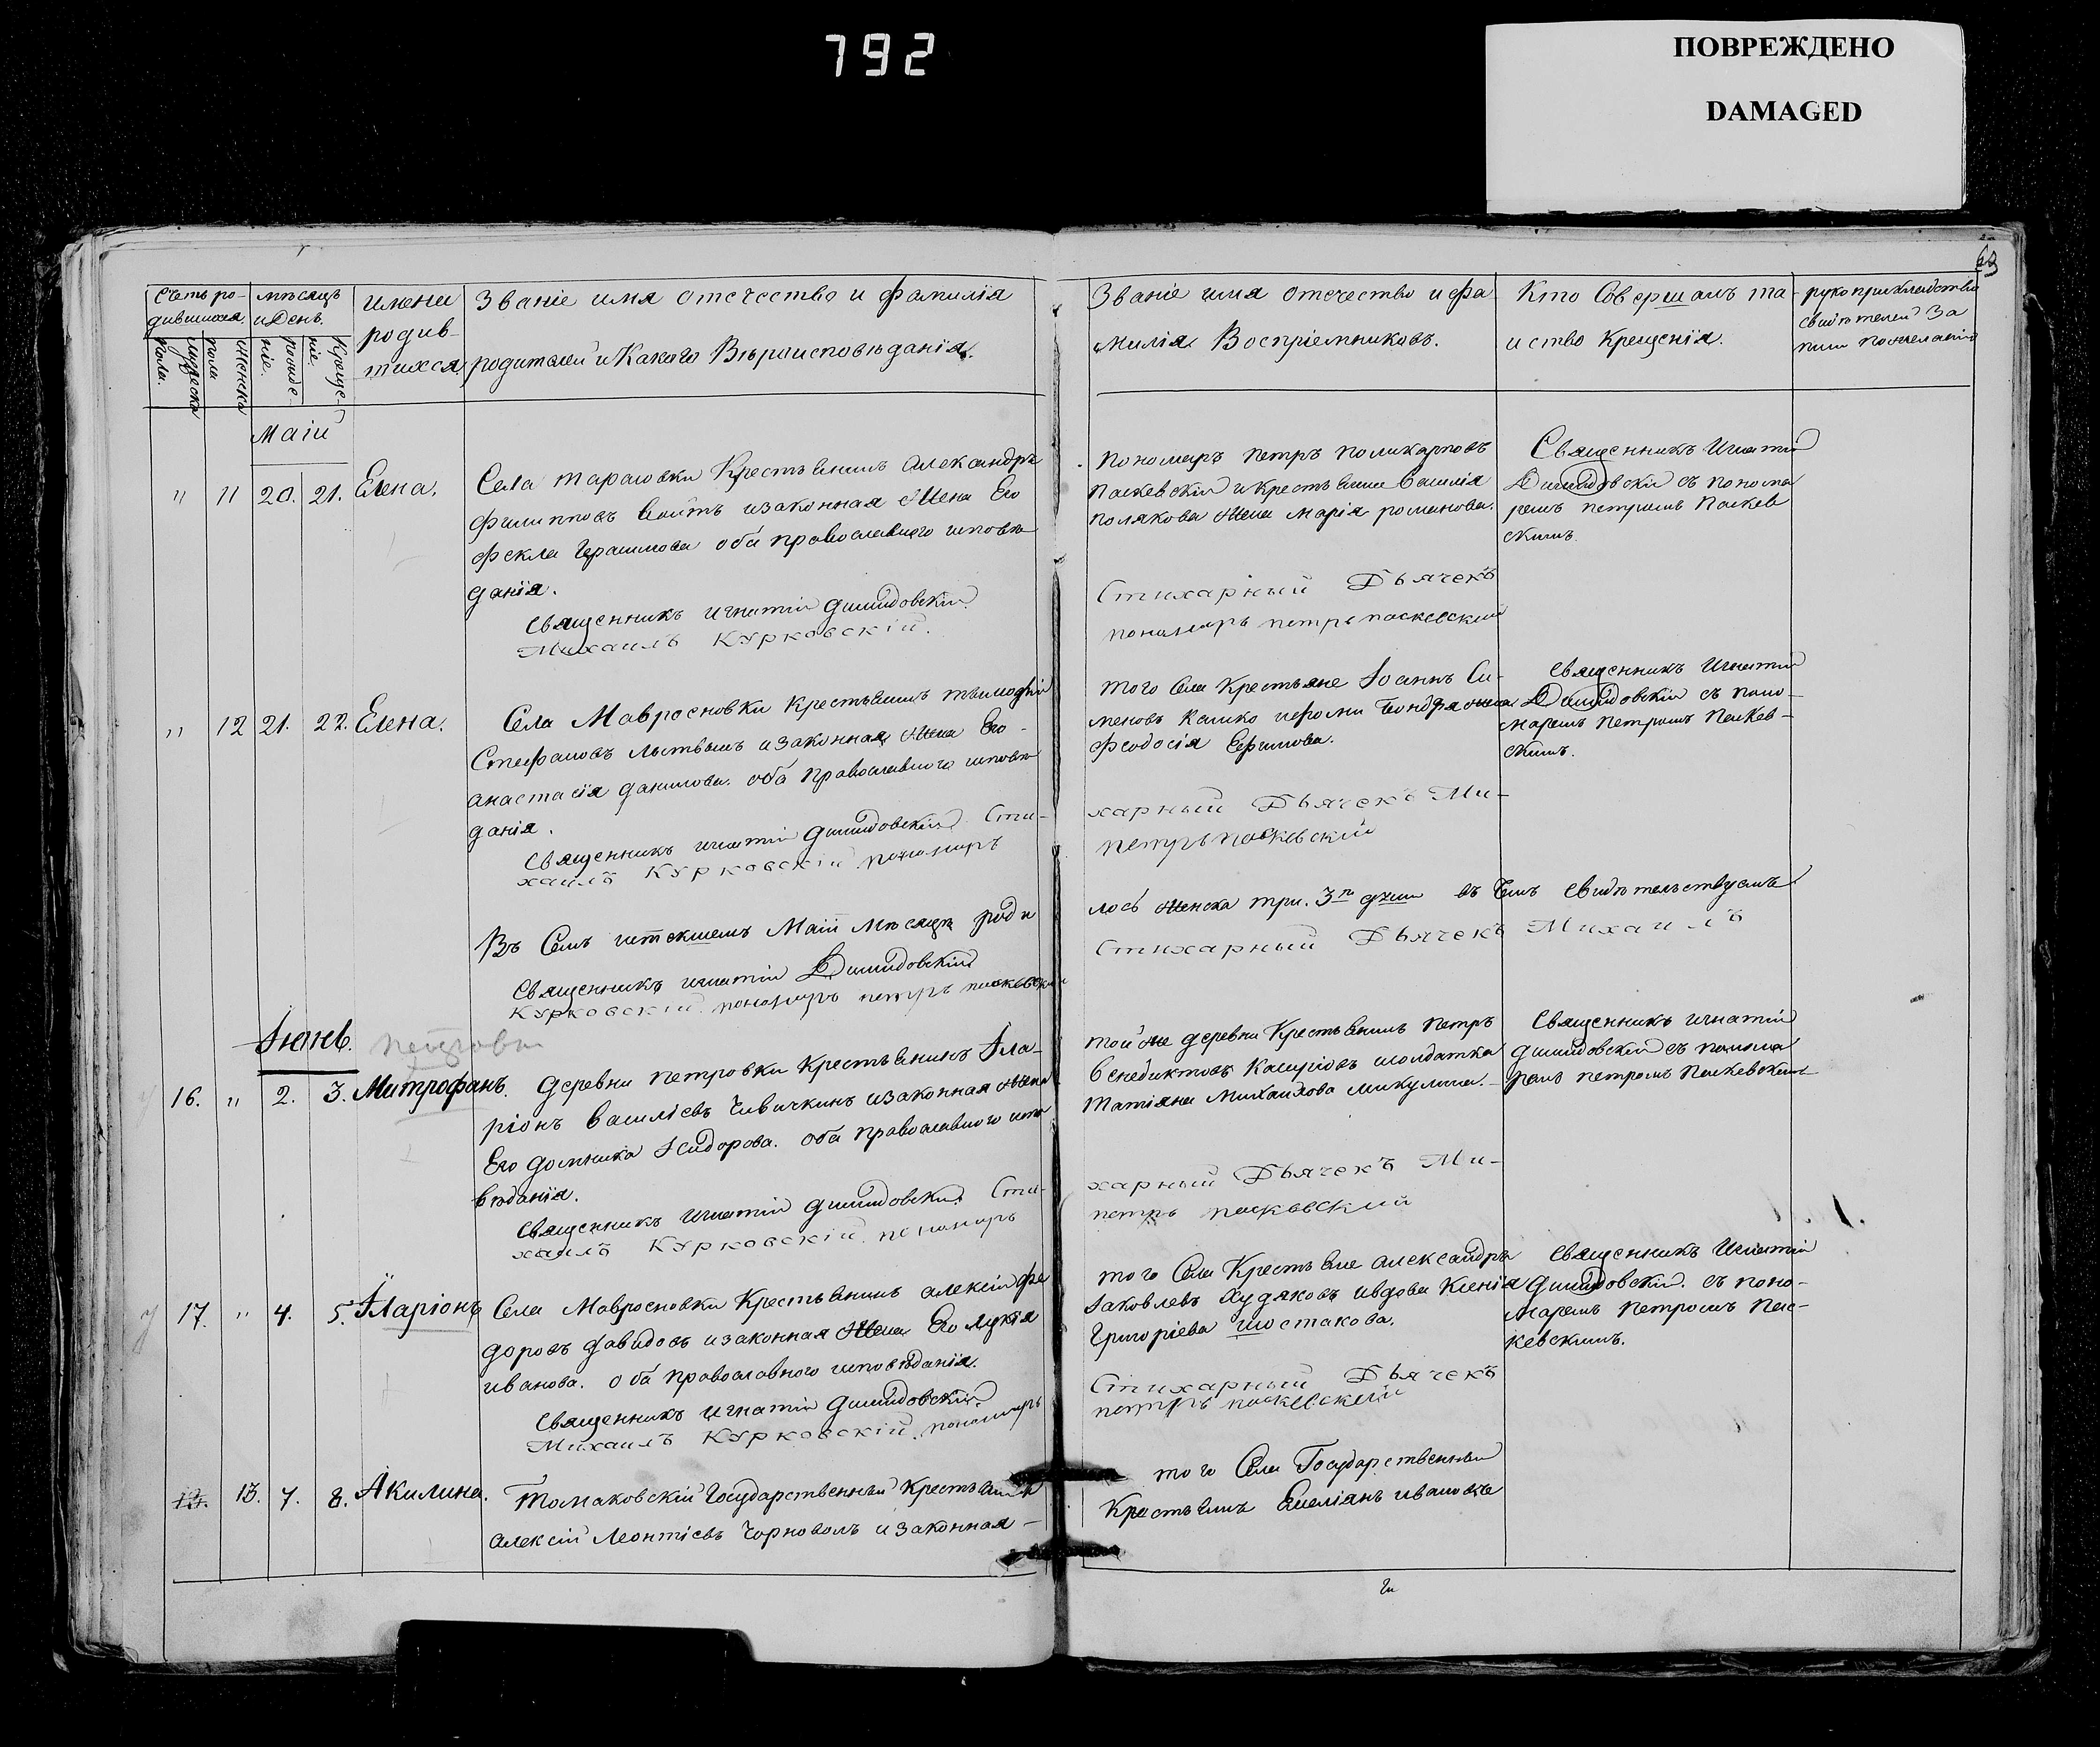 792
ПОВРЕЖДЕНО
DAMAGED
63
Счетъ ро-
дившихся.
мѣсяцъ
и День.
имена
родив-
шихся
Званіе имя отечество и фамилія
родителей и Какого Вѣроисповѣданія.
мужеска
пола.
женска
пола
рожде-
ніе.
Креще-
ніе
Званіе имя отечество и фа-
милія Воспріемниковъ.
Кто Совершалъ та-
инство Крещенія.
рукоприкладство
свидѣтелей За
писи по желанію
Маій
" 11 20. 21. Елена.
Села тарасовки Крестьянинъ Александръ
Филипповъ Войтъ и законная Жена Его
Фекла Герасимова оба православнаго исповѣ
данія.
Священникъ игнатій Димидовскій
Михаилъ Курковскій.
Пономарь петръ поликарповъ
Паскевскій и крестьянина Василія
полякова жена марія романова.
Стихарный Дьячекъ
пономарь петръ паскевский
Священникъ Игнатій
Димидовскій съ понома
ремъ петромъ Паскев
скимъ.
" 12 21. 22. Елена.
Села Мавросновки крестьянинъ тимофей
Стефановъ и законная жена Его
анастасія данилова. оба Православнаго исповѣ
данія.
Священникъ игнатій димидовскій. Сти-
хаилъ Курковскій пономарь
того Села Крестьяне Іоаннъ Си-
меновъ Кашко жена
Феодосія Ефимова.
харный Дьячекъ Ми-
петръ паскевский
Священникъ Игнатій
Димидовскій съ поно-
маремъ Петромъ Паскев-
скимъ.
Въ Семъ истекшемъ Маіи Мѣсяцѣ роди
лось женска три. 3 души въ Чемъ Свидѣтельствуемъ
Священникъ игнатій Димидовскій
Стихарный Дьячекъ Михаилъ
Курковскій. пономарь петръ паскевский
Іюнь.
петровки
16. " 2. 3. Митрофанъ.
деревни петровки Крестьянинъ Іла-
ріонъ Василіевъ Чивичкинъ и законная жена
Его домника Исидорова. оба Православнаго испо
вѣданія.
Священникъ игнатій димидовскій. Сти-
хаилъ Курковскій. пономарь
той же деревни Крестьянинъ петръ
Венедиктовъ и солдатка
Татіяна Михаилова микулина.
харный Дьячекъ Ми-
петръ паскевский
Священникъ игнатій
димидовскій съ понома
ремъ петромъ Паскевскимъ
17. " 4. 5. Иларіонъ
Села Мавросновки Крестьянинъ алексій Фе
доровъ давидовъ и законная Жена Его лукія
иванова. оба православного исповѣданія.
Священникъ игнатій димидовскій
Михаилъ Курковскій, пономарь
того Села Крестьяне александръ
Іаковлевъ Худяковъ и вдова Ксенія
Григоріева шостакова.
Стихарный Дьячекъ
петръ паскевский
Священникъ Игнатій
димидовскій. съ поно-
маремъ петромъ Пас-
кевскимъ.
13. 7. 8. Акилина.
Томаковскій Государственный Крестьянинъ
алексій Леонтіевъ Чорноволъ и законная -
того Села Государственный
Крестьянинъ Емеліянъ ивановъ